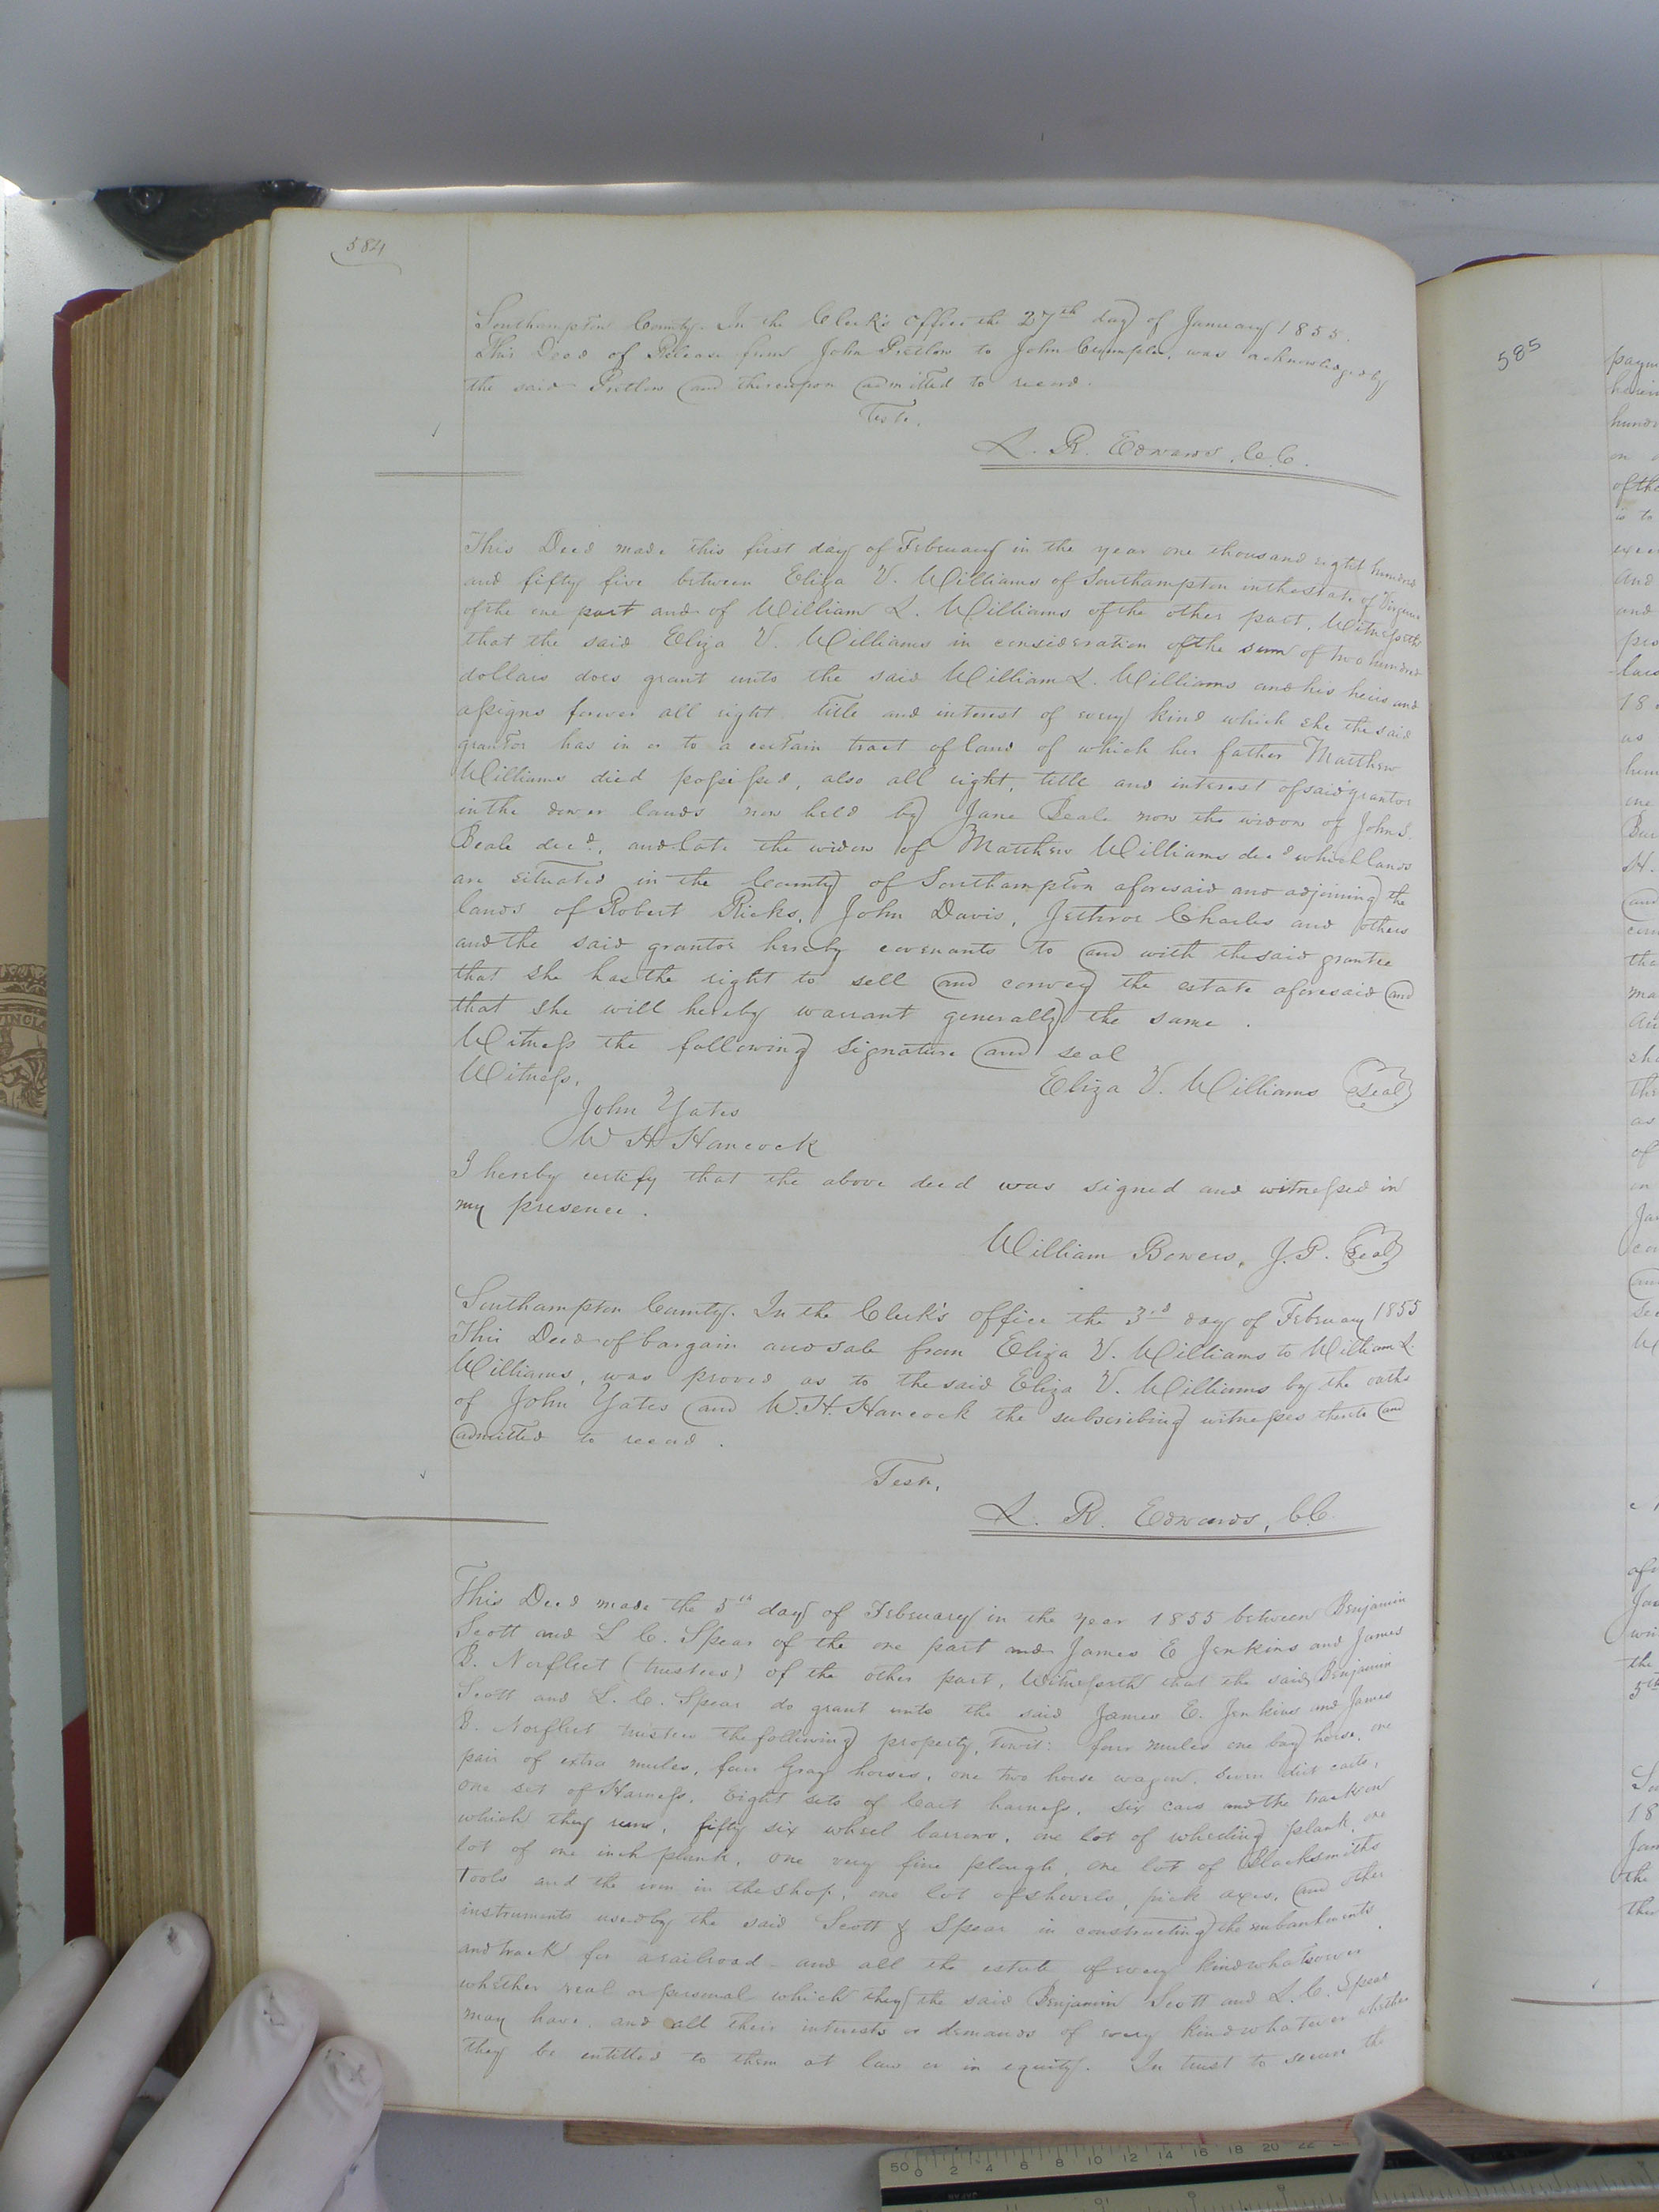 584
Southampton County. In the Clerk's Office the 27th day of January 1855.
This Deed of Release from John Pretlow to John Crumpler, was acknowledged by
the said Pretlow and thereupon admitted to record.
Teste,
L. R. Edwards, C.C.
This Deed made this first day of February in the year one thousand eight hundred
and fifty five between Eliza V. Williams of Southampton in the state of Virginia
of the one part and of William L. Williams of the other part, Witnesseth
that the said Eliza V. Williams in consideration of the sum of two hundred
dollars does grant unto the said William L. Williams and his heirs and
assigns forever all right title and interest of every kind which she the said
grantor has in or to a certain tract of land of which her father Matthew
Williams died possessed, also all right, title and interest of said grantor
in the dower lands now held by Jane Beale now the widow of John S.
Beale decd., and late the widow of Matthew Williams decd which lands
are situated in the County of Southampton aforesaid and adjoining the
lands of Robert Ricks, John Davis, Jethroe Charles and others
and the said grantor hereby covenants to and with the said grantee
that she has the right to sell and convey the estate aforesaid and
that she will hereby warrant generally the same.
Witness the following signature and seal
Witness, Eliza V. Williams Seal
John Yates
W H Hancock
I hereby certify that the above deed was signed and witnessed in
my presence.
William Bowers, J.P. Seal
Southampton County. In the Clerk's office the 3rd day of February 1855
This Deed of bargain and sale from Eliza V. Williams to William L.
Williams, was proved as to the said Eliza V. Williams by the oaths
of John Yates and W.H. Hancock the subscribing witnesses thereto and
admitted to record.
Teste,
L. R. Edwards, C.C.
This Deed made the 5th day of February in the year 1855 between Benjamin
Scott and L C. Spear of the one part and James E Jenkins and James
B. Norfleet (trustees) of the other part, Witnesseth that the said Benjamin
Scott and L. C. Spear do grant unto the said James E. Jenkins and James
B. Norfleet trustees the following property, Towit: four mules one bay horse, one
pair of extra mules, four Gray horses, one two horse wagon, seven dirt carts,
one set of Harness, Eight sets of Cart harness, six cars and the track on
which they runs, fifty six wheel barrows, one lot of wheeling plank, one
lot of one inch plank, one very fine plough, one lot of Blacksmiths
Tools and the iron in the shop, one lot of shovels, pick axes, and other
instruments used by the said Scott & Spear in constructing the embankments
and track for a railroad and all the estate of every kind whatsoever
whether real or personal which they the said Benjamin Scott and L. C. Spear
may have, and all their interests or demands of every kind whatever whether
they be entitled to them at law or in equity. In trust to secure the
585
50 0 2 4 6 8 10 12 14 16 18 20 22